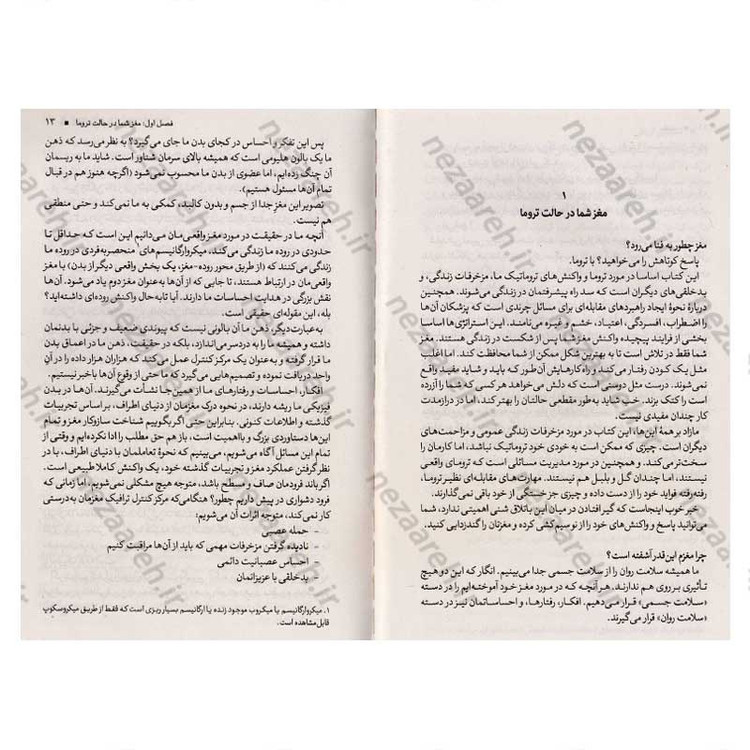 ۱
مغز شما در حالت تروما
مغز چطور به فنا می‌رود؟
پاسخ کوتاهش را می‌خواهید؟ با تروما.
این کتاب اساسا در مورد تروما و واکنش‌های تروماتیک ما، مزخرفات زندگی، و
بدخلقی‌های دیگران است که سد راه پیشرفتمان در زندگی می‌شوند. همچنین
دربارهٔ نحوهٔ ایجاد راهبردهای مقابله‌ای برای مسائل چرندی است که پزشکان آن‌ها
را اضطراب، افسردگی، اعتیاد، خشم و غیره می‌نامند. این استراتژی‌ها اساسا
بخشی از فرایند پیچیده واکنش مغز شما پس از شکست در زندگی هستند. مغز
شما فقط در تلاش است تا به بهترین شکل ممکن از شما محافظت کند. اما اغلب
مثل یک کودن رفتار می‌کند و راه کارهایش آن‌طور که باید و شاید مفید واقع
نمی‌شوند. درست مثل دوستی است که دلش می‌خواهد هر کسی که شما را آزرده
است را کتک بزند. خب شاید به‌طور مقطعی حالتان را بهتر کند، اما در درازمدت
کار چندان مفیدی نیست.
مازاد بر همهٔ این‌ها، این کتاب در مورد مزخرفات زندگی عمومی و مزاحمت‌های
دیگران است. چیزی که ممکن است به خودی خود تروماتیک نباشد، اما کارمان را
سخت‌تر می‌کند. و همچنین در مورد مدیریت مسائلی است که ترومای واقعی
نیستند، اما چندان گل و بلبل هم نیستند. مهارت‌های مقابله‌ای نظیر تروما،
رفته‌رفته فواید خود را از دست داده و چیزی جز خستگی از خود باقی نمی‌گذارند.
خبر خوب اینجاست که گیر افتادن در میان این باتلاق شنی اهمیتی ندارد، شما
می‌توانید پاسخ و واکنش‌های خود را از نو سیم کشی کرده و مغزتان را گندزدایی کنید.
چرا مغزم این قدر آشفته است؟
ما همیشه سلامت روان را از سلامت جسمی جدا می‌بینیم. انگار که این دو هیچ
تأثیری بر روی هم ندارند. هر آنچه که در مورد مغز خود آموخته‌ایم را در دسته
«سلامت جسمی» قرار می‌دهیم. افکار، رفتارها، و احساساتمان نیز در دسته
«سلامت روان» قرار می‌گیرند.
فصل اول: مغز شما در حالت تروما ■ ۱۳
پس این تفکر و احساس در کجای بدن ما جای می‌گیرد؟ به نظر می‌رسد که ذهن
ما یک بالون هلیومی است که همیشه بالای سرمان شناور است. شاید ما به ریسمان
آن چنگ زده‌ایم، اما عضوی از بدن ما محسوب نمی‌شود (اگرچه هنوز هم در قبال
تمام آن‌ها مسئول هستیم).
تصویر این مغز جدا از جسم و بدون کالبد، کمکی به ما نمی‌کند و حتی منطقی
هم نیست.
آنچه ما در حقیقت در مورد مغز واقعی‌مان می‌دانیم این است که حداقل تا
حدودی در روده ما زندگی می‌کند، میکروارگانیسم‌های¹ منحصربه‌فردی در روده ما
زندگی می‌کنند که (از طریق محور روده-مغز، یک پخش واقعی دیگر از بدن) با مغز
واقعی‌مان در ارتباط هستند، تا جایی که از آن‌ها به‌عنوان مغز دوم یاد می‌شود. آن‌ها
نقش بزرگی در هدایت احساسات ما دارند. آیا تا به حال واکنش روده‌ای داشته‌اید؟
بله، این مقوله‌ای حقیقی است.
به‌عبارت‌دیگر، ذهن ما آن بالونی نیست که پیوندی ضعیف و جزئی با بدنمان
داشته و همیشه ما را به دردسر می‌اندازد. بلکه در حقیقت، ذهن ما در اعماق بدن
ما قرار گرفته و به‌عنوان یک مرکز کنترل عمل می‌کند که هزاران هزار داده را در آن
واحد دریافت نموده و تصمیم‌هایی می‌گیرد که ما حتی از وقوع آن‌ها با خبر نیستیم.
افکار، احساسات و رفتارهای ما از همین‌جا نشأت می‌گیرند. آن‌ها در بدن
فیزیکی ما ریشه دارند، در نحوه درک مغزمان از دنیای اطراف، بر اساس تجربیات
گذشته و اطلاعات کنونی. بنابراین حتی اگر بگوییم شناخت سازوکار مغز و تمام
این‌ها دستاوردی بزرگ و بااهمیت است، باز هم حق مطلب را ادا نکرده‌ایم و وقتی از
تمام این مسائل آگاه می‌شویم، می‌بینیم که نحوهٔ تعاملمان با دنیای اطراف، با در
نظر گرفتن عملکرد مغز و تجربیات گذشته خود، یک واکنش کاملا طبیعی است.
اگر باند فرودمان صاف و مسطح باشد، متوجه هیچ مشکلی نمی‌شویم، اما زمانی که
فرود دشواری در پیش داریم چطور؟ هنگامی‌که مرکز کنترل ترافیک مغزمان به درستی
کار نمی‌کند، متوجه اثرات آن می‌شویم:
– حمله عصبی
– نادیده گرفتن مزخرفات مهمی که باید از آن‌ها مراقبت کنیم
– احساس عصبانیت دائمی
– بدخلقی با عزیزانمان
۱. میکروارگانیسم یا میکروب موجود زنده یا ارگانیسم بسیار ریزی است که فقط از طریق میکروسکوپ
قابل مشاهده است.
nezaareh.ir